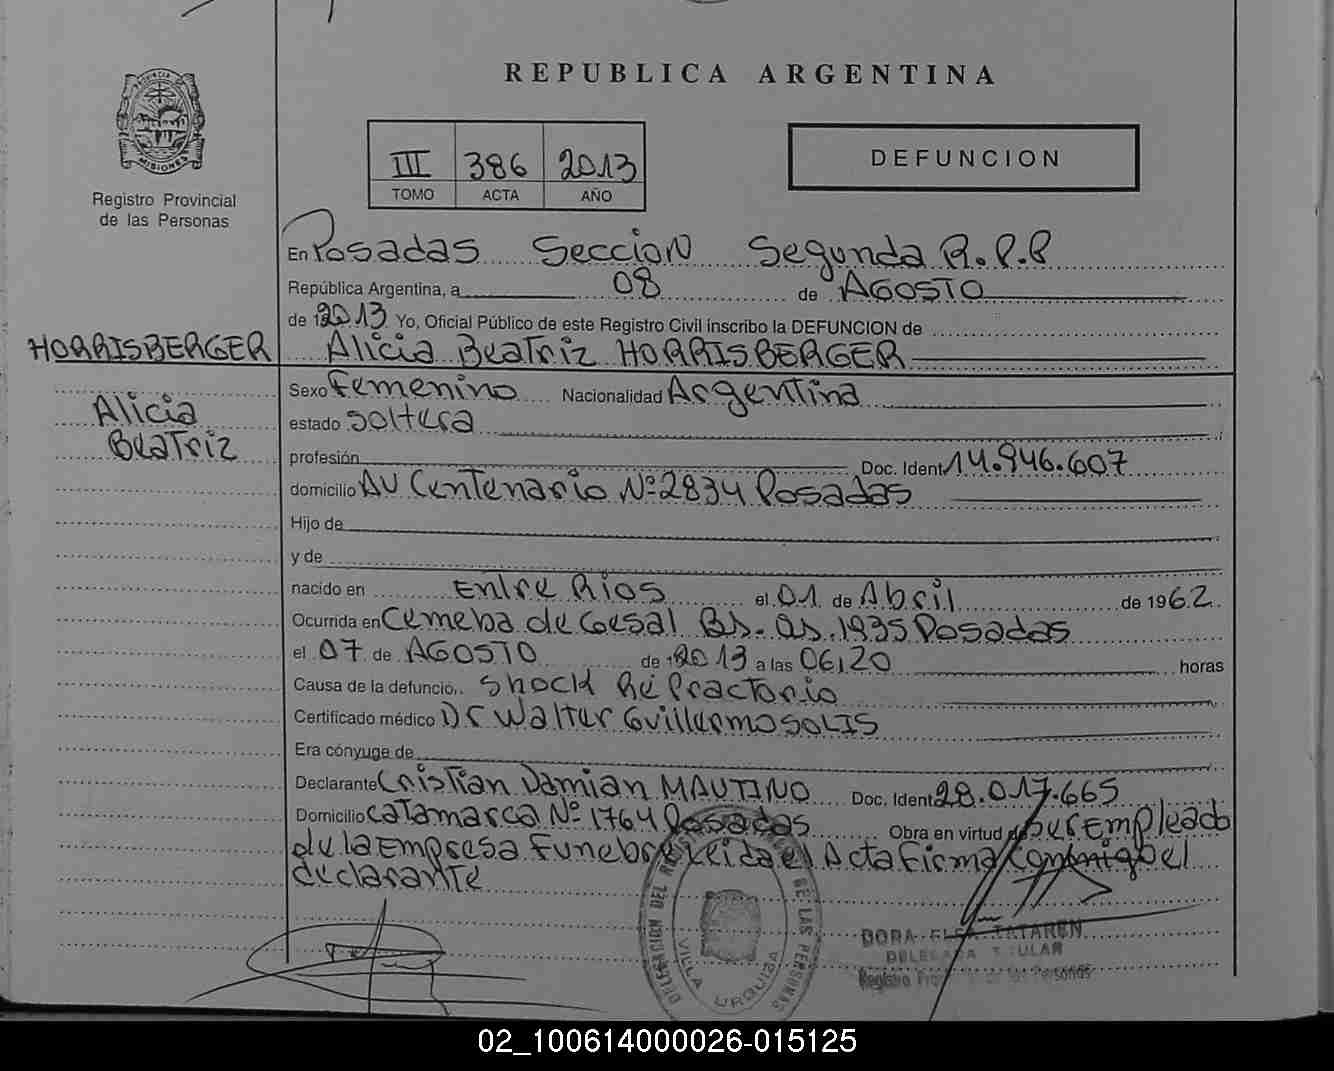 REPUBLICA ARGENTINA
PROVINCIA DE MISIONES
Registro Provincial
de las Personas
III 386 2013
TOMO ACTA AÑO
DEFUNCION
En Posadas Seccion Segunda R.P.P
República Argentina, a 08 de AGOSTO
de 12013 Yo, Oficial Público de este Registro Civil inscribo la DEFUNCION de
HORRISBERGER
Alicia
Beatriz
Alicia Beatriz HORRISBERGER
Sexo Femenino Nacionalidad Argentina
estado soltera
profesión Doc. Ident 14.946.607
domicilio AV Centenario Nº 2834 Posadas
Hijo de
y de
nacido en Entre Rios el 01 de Abril de 1962
Ocurrida en Cemeba de Gesal Bs. As. 1935 Posadas
el 07 de AGOSTO de 12013 a las 06,20 horas
Causa de la defunción Shock Refractorio
Certificado médico Dr Walter Guillermo SOLIS
Era cónyuge de
Declarante Cristian Damian MAUTINO Doc. Ident 28.017.665
Domicilio Catamarca Nº 1764 Posadas Obra en virtud de ser Empleado
de la Empresa Funebre Leida el Acta Firma Conmigo el
declarante
DELEGACION DEL REGISTRO DE LAS PERSONAS
VILLA URQUIZA
DORA ELSA TATAREN
DELEGADA TITULAR
Registro Provincial de las Personas
02_100614000026-015125